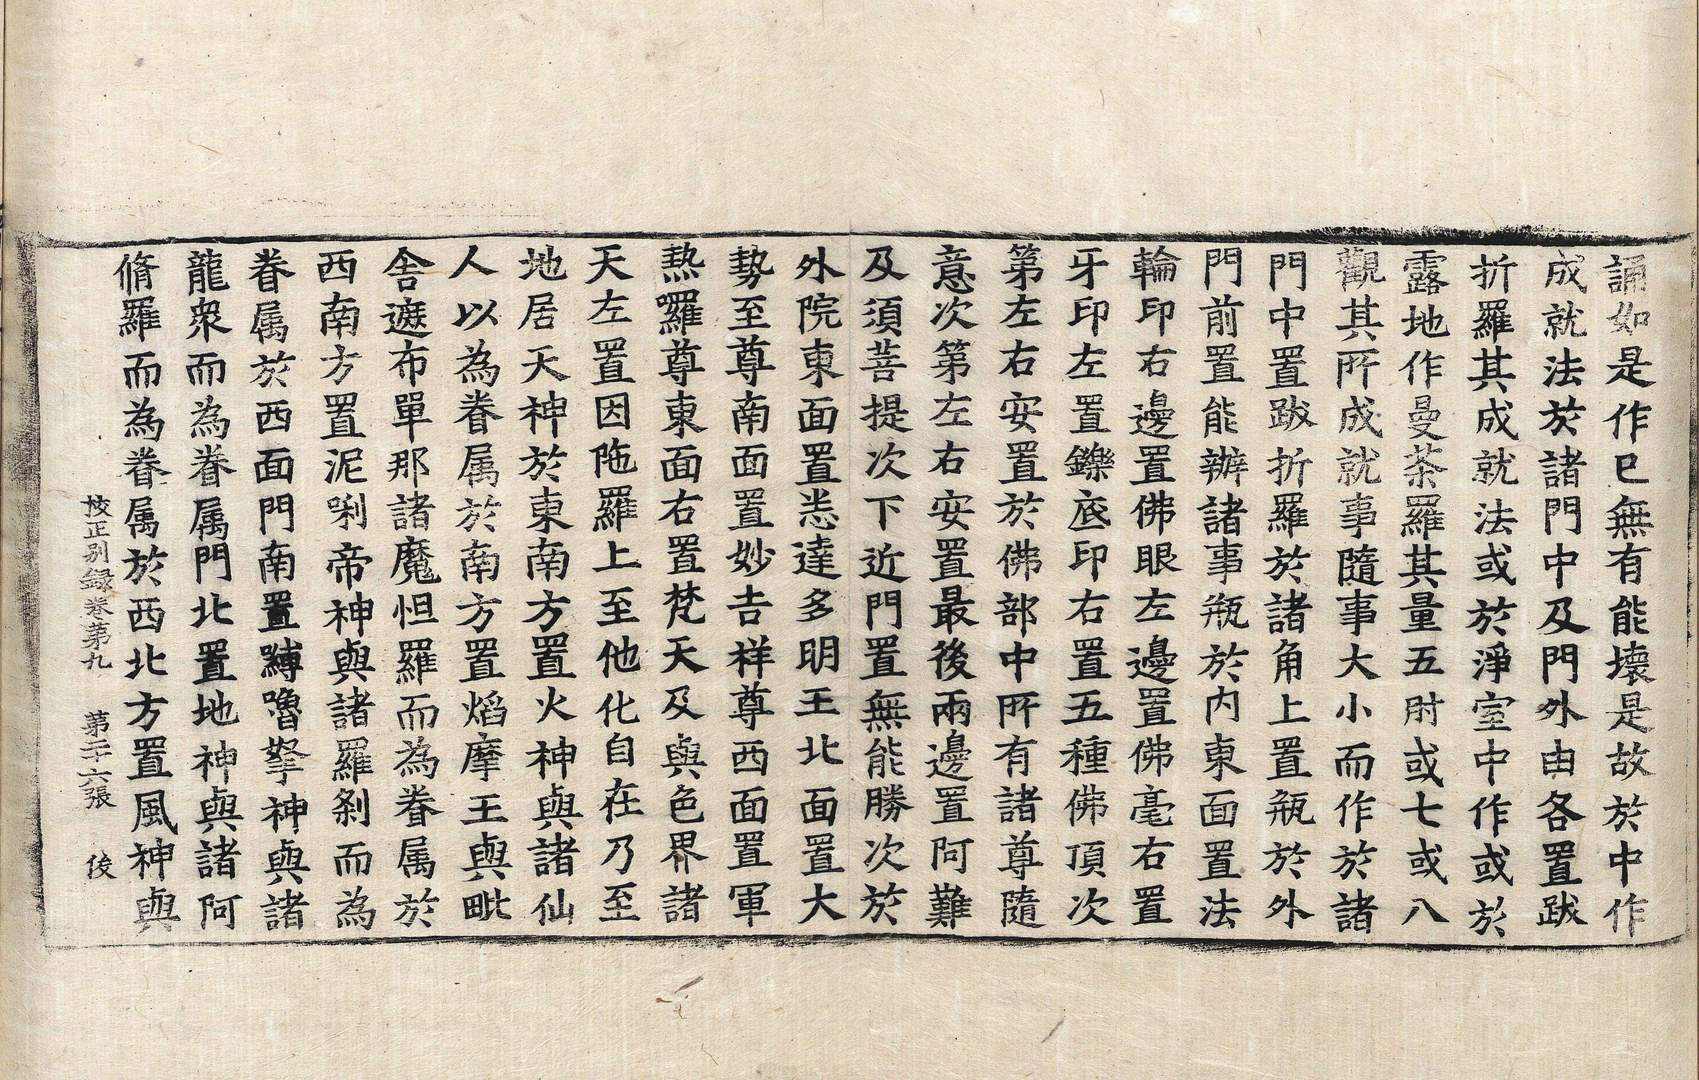 誦如是作已無有能壞是故於中作
成就法於諸門中及門外由各置跋
折羅其成就法或於淨室中作或於
露地作曼荼羅其量五肘或七或八
觀其所成就事隨事大小而作於諸
門中置跋折羅於諸角上置瓶於外
門前置能辦諸事瓶於内東面置法
輪印右邊置佛眼左邊置佛毫右置
牙印左置鑠底印右置五種佛頂次
第左右安置於佛部中所有諸尊隨
意次第左右安置最後兩邊置阿難
及須菩提次下近門置無能勝次於
外院東面置悉達多明王北面置大
勢至尊南面置妙吉祥尊西面置軍
𤍠囉尊東面右置梵天及與色界諸
天左置因陁羅上至他化自在乃至
地居天神於東南方置火神與諸仙
人以為眷属於南方置焰摩王與毗
舎遮布單那諸魔怛羅而為眷属於
西南方置泥唎帝神與諸羅剎而為
眷属於西面門南置縛嚕拏神與諸
龍衆而為眷属門北置地神與諸阿
脩羅而為眷属於西北方置風神與
挍正别録卷第九　第二十六張　俊